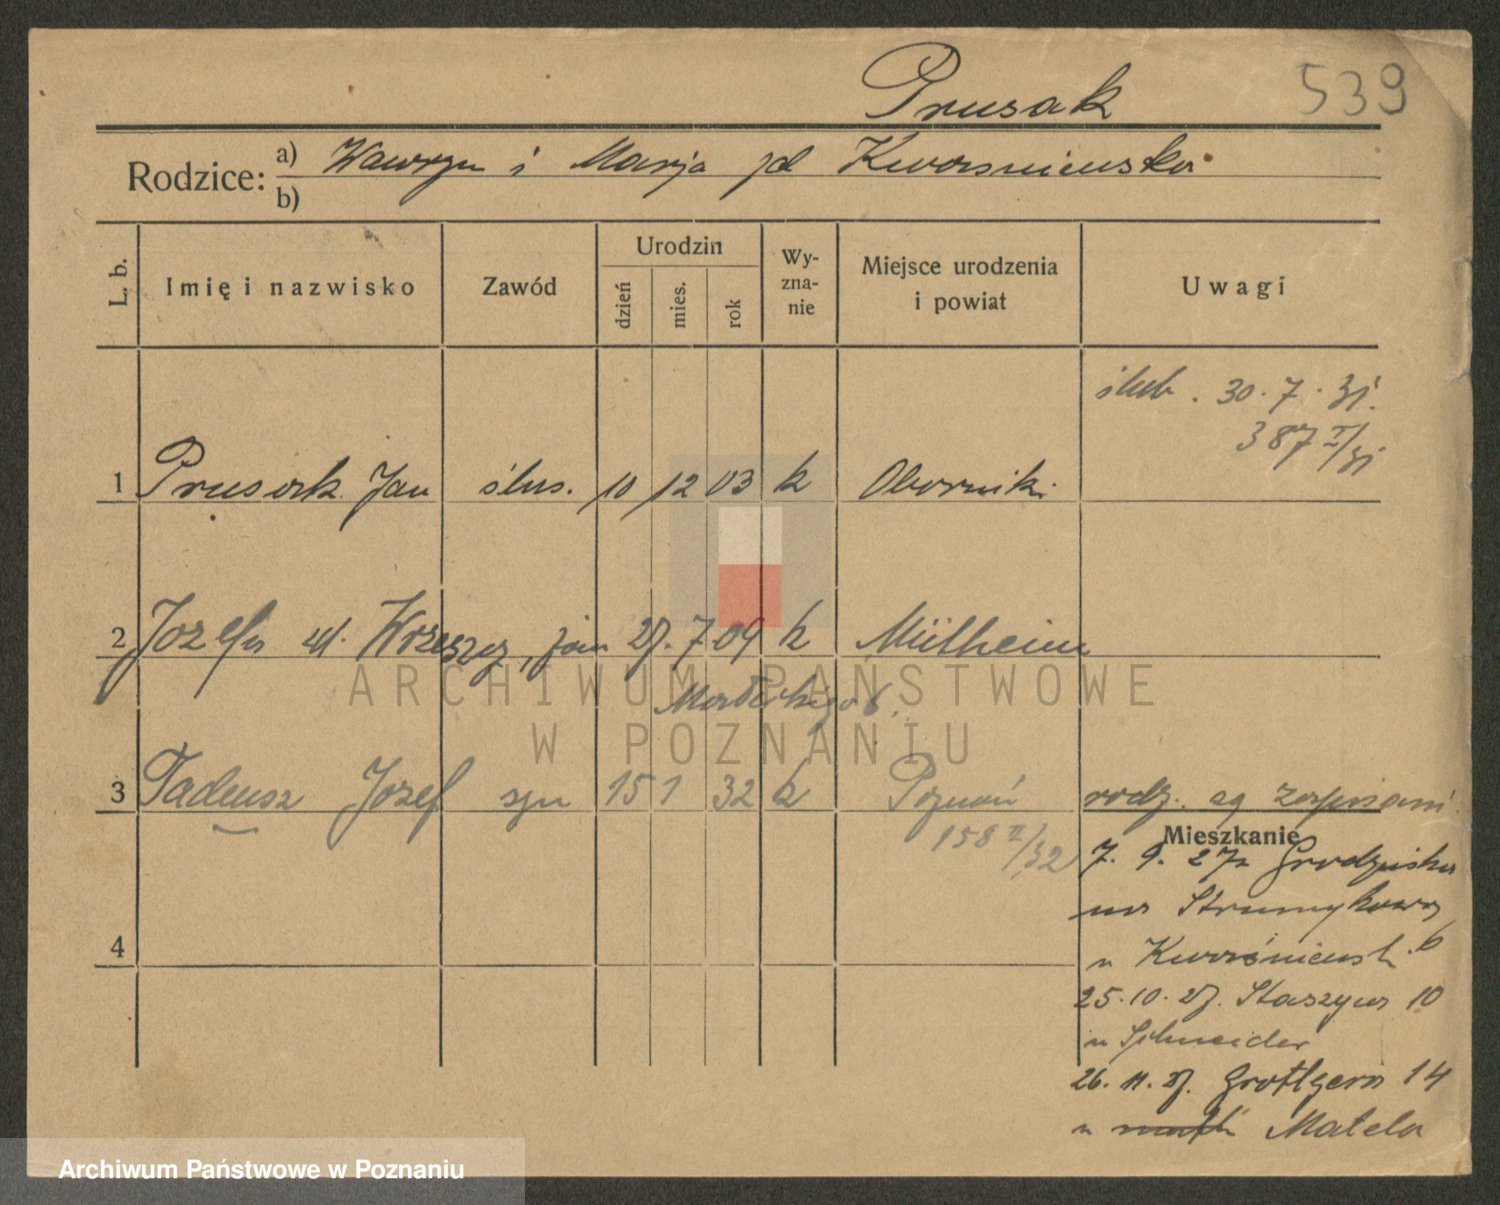 Prusak 539
Rodzice: a) Wawrzyn i Marja zd Kwaśniewska
b)
L. b. Imię i nazwisko Zawód Urodzin dzień mies. rok Wy-zna-nie Miejsce urodzenia i powiat Uwagi
ślub. 30.7.31.
387 II/31
1 Prusak Jan ślus. 10 12 03 k Oborniki
2 Józefa ur. Wrzeszcz, żona 27. 7 09 k Mülheim
6
3 Tadeusz Józef syn 15 1 32 k Poznań rodz. są zapisani
158 II/32
Mieszkanie
7. 9. 27 Grodziska
na Strumykowa 6
4
u Kwaśniewsk.
25.10.27. Staszyca 10
u Schneider
26.11.27. Grottgera 14
u Matela
ARCHIWUM PAŃSTWOWE
W POZNANIU
Archiwum Państwowe w Poznaniu